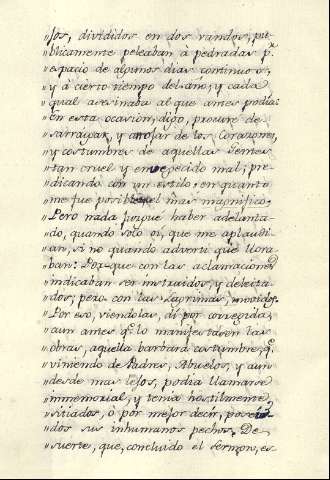 "Jos, divididos en dos vandos, pu-
"blicamente peleaban à pedradas p.r
"espacio de algunos dias continuos,
"y à cierto tiempo del año, y cada
"qual asesinaba al que antes podia:
"En esta ocasion, digo, procuré de-
"sarraygar, y arrojar de los Corazones,
"y costumbres de aquellas Gentes
"tan cruel y envegecido mal; pre-
"dicando con un estilo, en quanto
"me fue posible el mas magnifico.
"Pero nada juzgué haber adelanta-
"do, quando solo oí, que me aplaudi-
"an, si no quando advertí que llora-
"ban: Porque con las aclamaciones
"indicaban ser instruidos, y deleita-
"dos; pero con las Lagrimas, movidos.
"Por eso, viendolas, di por corregida,
"aun antes q.e lo manifestasen las
"obras, aquella barbara costumbre, q.e
"viniendo de Padres, Abuelos, y aun
"desde mas lejos, podia llamarse
"immemorial, y tenia hostilmente
"sitiados, ò por mejor decir, poseí-
"dos sus inhumanos pechos. De
"suerte, que, concluido el Sermon, es